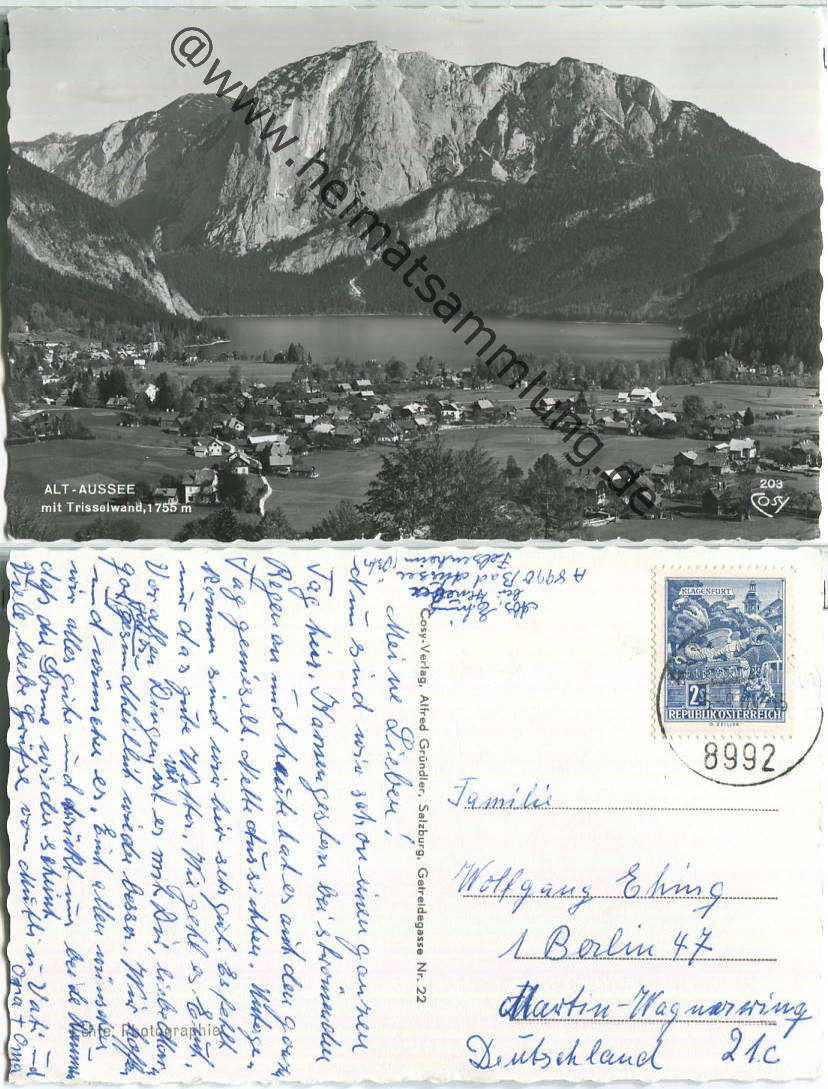 @www.heimatsammlung.de
ALT-AUSSEE
mit Trisselwand, 1755 m
203
COSY
Abs. Ehing
A 8990 Bad Aussee
Meine Lieben!
Nun sind wir schon einen ganzen
Tag hier. Kamen gestern bei strömenden
Regen an und heute hat es auch den ganz.
Tag genieselt. Nette Aussichten. Unterge-
kommen sind wir hier sehr gut. Es fehlt
nur das gute Wetter. Wie geht es Euch,
Vor allen Dingen wie ist es mit Dir, liebe
gesundheitlich wieder besser. Wir hoffen
und wünschen es. Euch allen wünschen
wir alles gute und drückt uns beide Daumen
daß die Sonne wieder scheint
Viele liebe Grüße von Mutti u. Vati und
Oma + Opa
Echte Photographie
Cosy-Verlag, Alfred Gründler, Salzburg, Getreidegasse Nr. 22
KLAGENFURT
2S
REPUBLIK ÖSTERREICH
8992
Familie
Wolfgang Ehing
1 Berlin 47
Martin-Wagnerring
Deutschland 21c